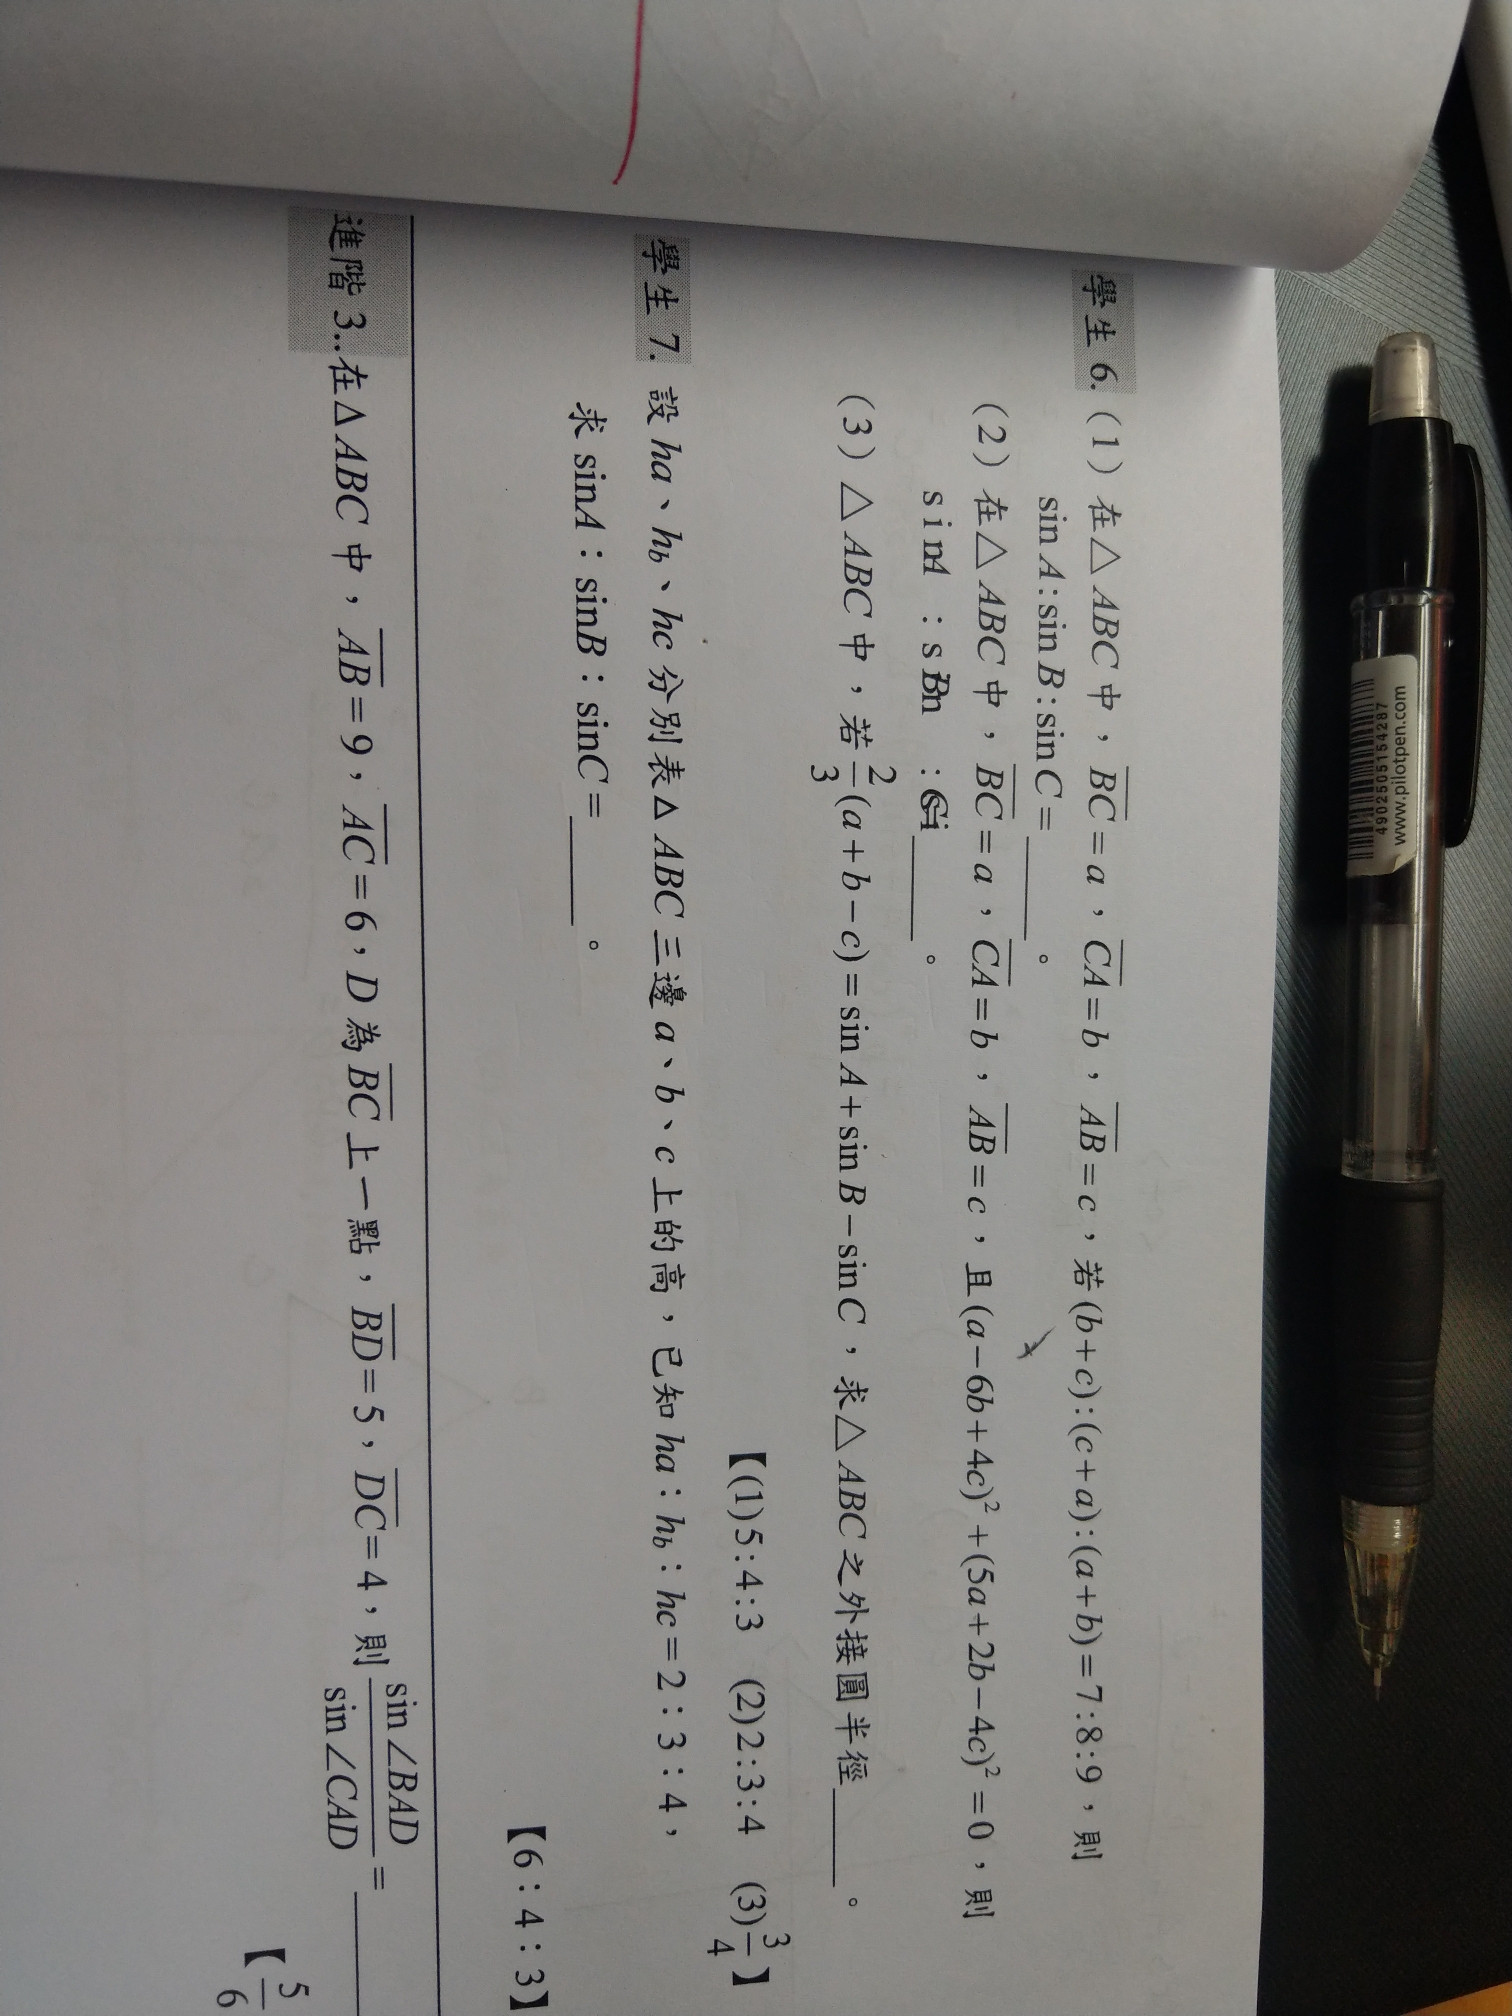 學生 6.（1）在△ABC中，BC=a，CA=b，AB=c，若(b+c):(c+a):(a+b)=7:8:9，則
sin A:sin B:sin C=______。
（2）在△ABC中，BC=a，CA=b，AB=c，且(a-6b+4c)²+(5a+2b-4c)²=0，則
sinA : sBn : ______。
（3）△ABC中，若2/3(a+b-c)=sin A+sin B-sin C，求△ABC之外接圓半徑______。
【(1)5:4:3 (2)2:3:4 (3)3/4】
學生 7. 設 ha、hb、hc 分別表△ABC三邊a、b、c上的高，已知ha：hb：hc=2：3：4，
求 sinA：sinB：sinC=______。
【6：4：3】
進階 3..在△ABC中，AB=9，AC=6，D為BC上一點，BD=5，DC=4，則 sin∠BAD/sin∠CAD=______
【5/6
www.pilotpen.com
4902505154287